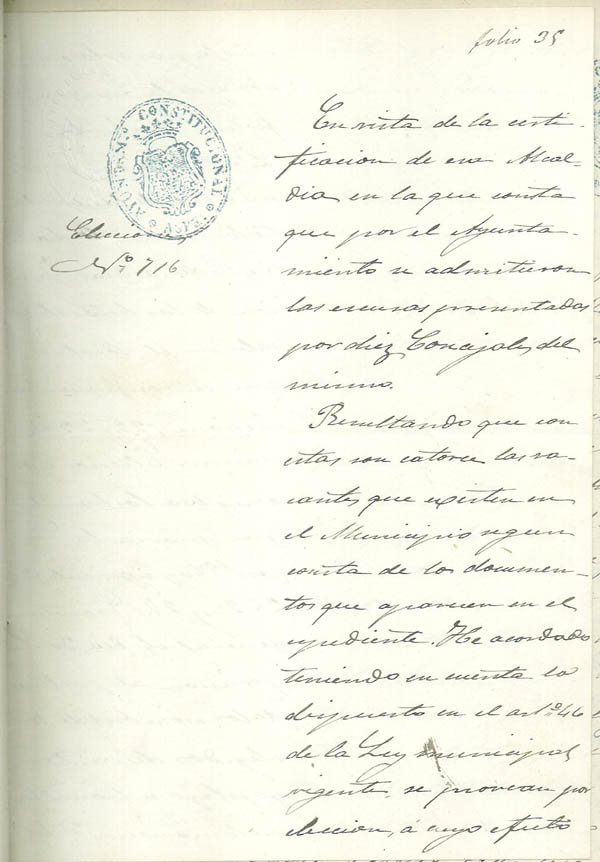 folio 35
AYUNTAM.TO CONSTITUCIONAL
ASPE
Elecciones
Nº 716
En vista de la certi-
ficacion de esa Alcal-
dia en la que consta
que por el Ayunta-
miento se admitieron
las escusas presentadas
por diez Concejales del
mismo.
Resultando que con
estas son catorce las va-
cantes que existen en
el Municipio segun
consta de los documen-
tos que aparecen en el
espediente. He acordado
teniendo en cuenta lo
dispuesto en el artº 46
de la Ley municipal
vigente, se provean por
eleccion, á cuyo efecto